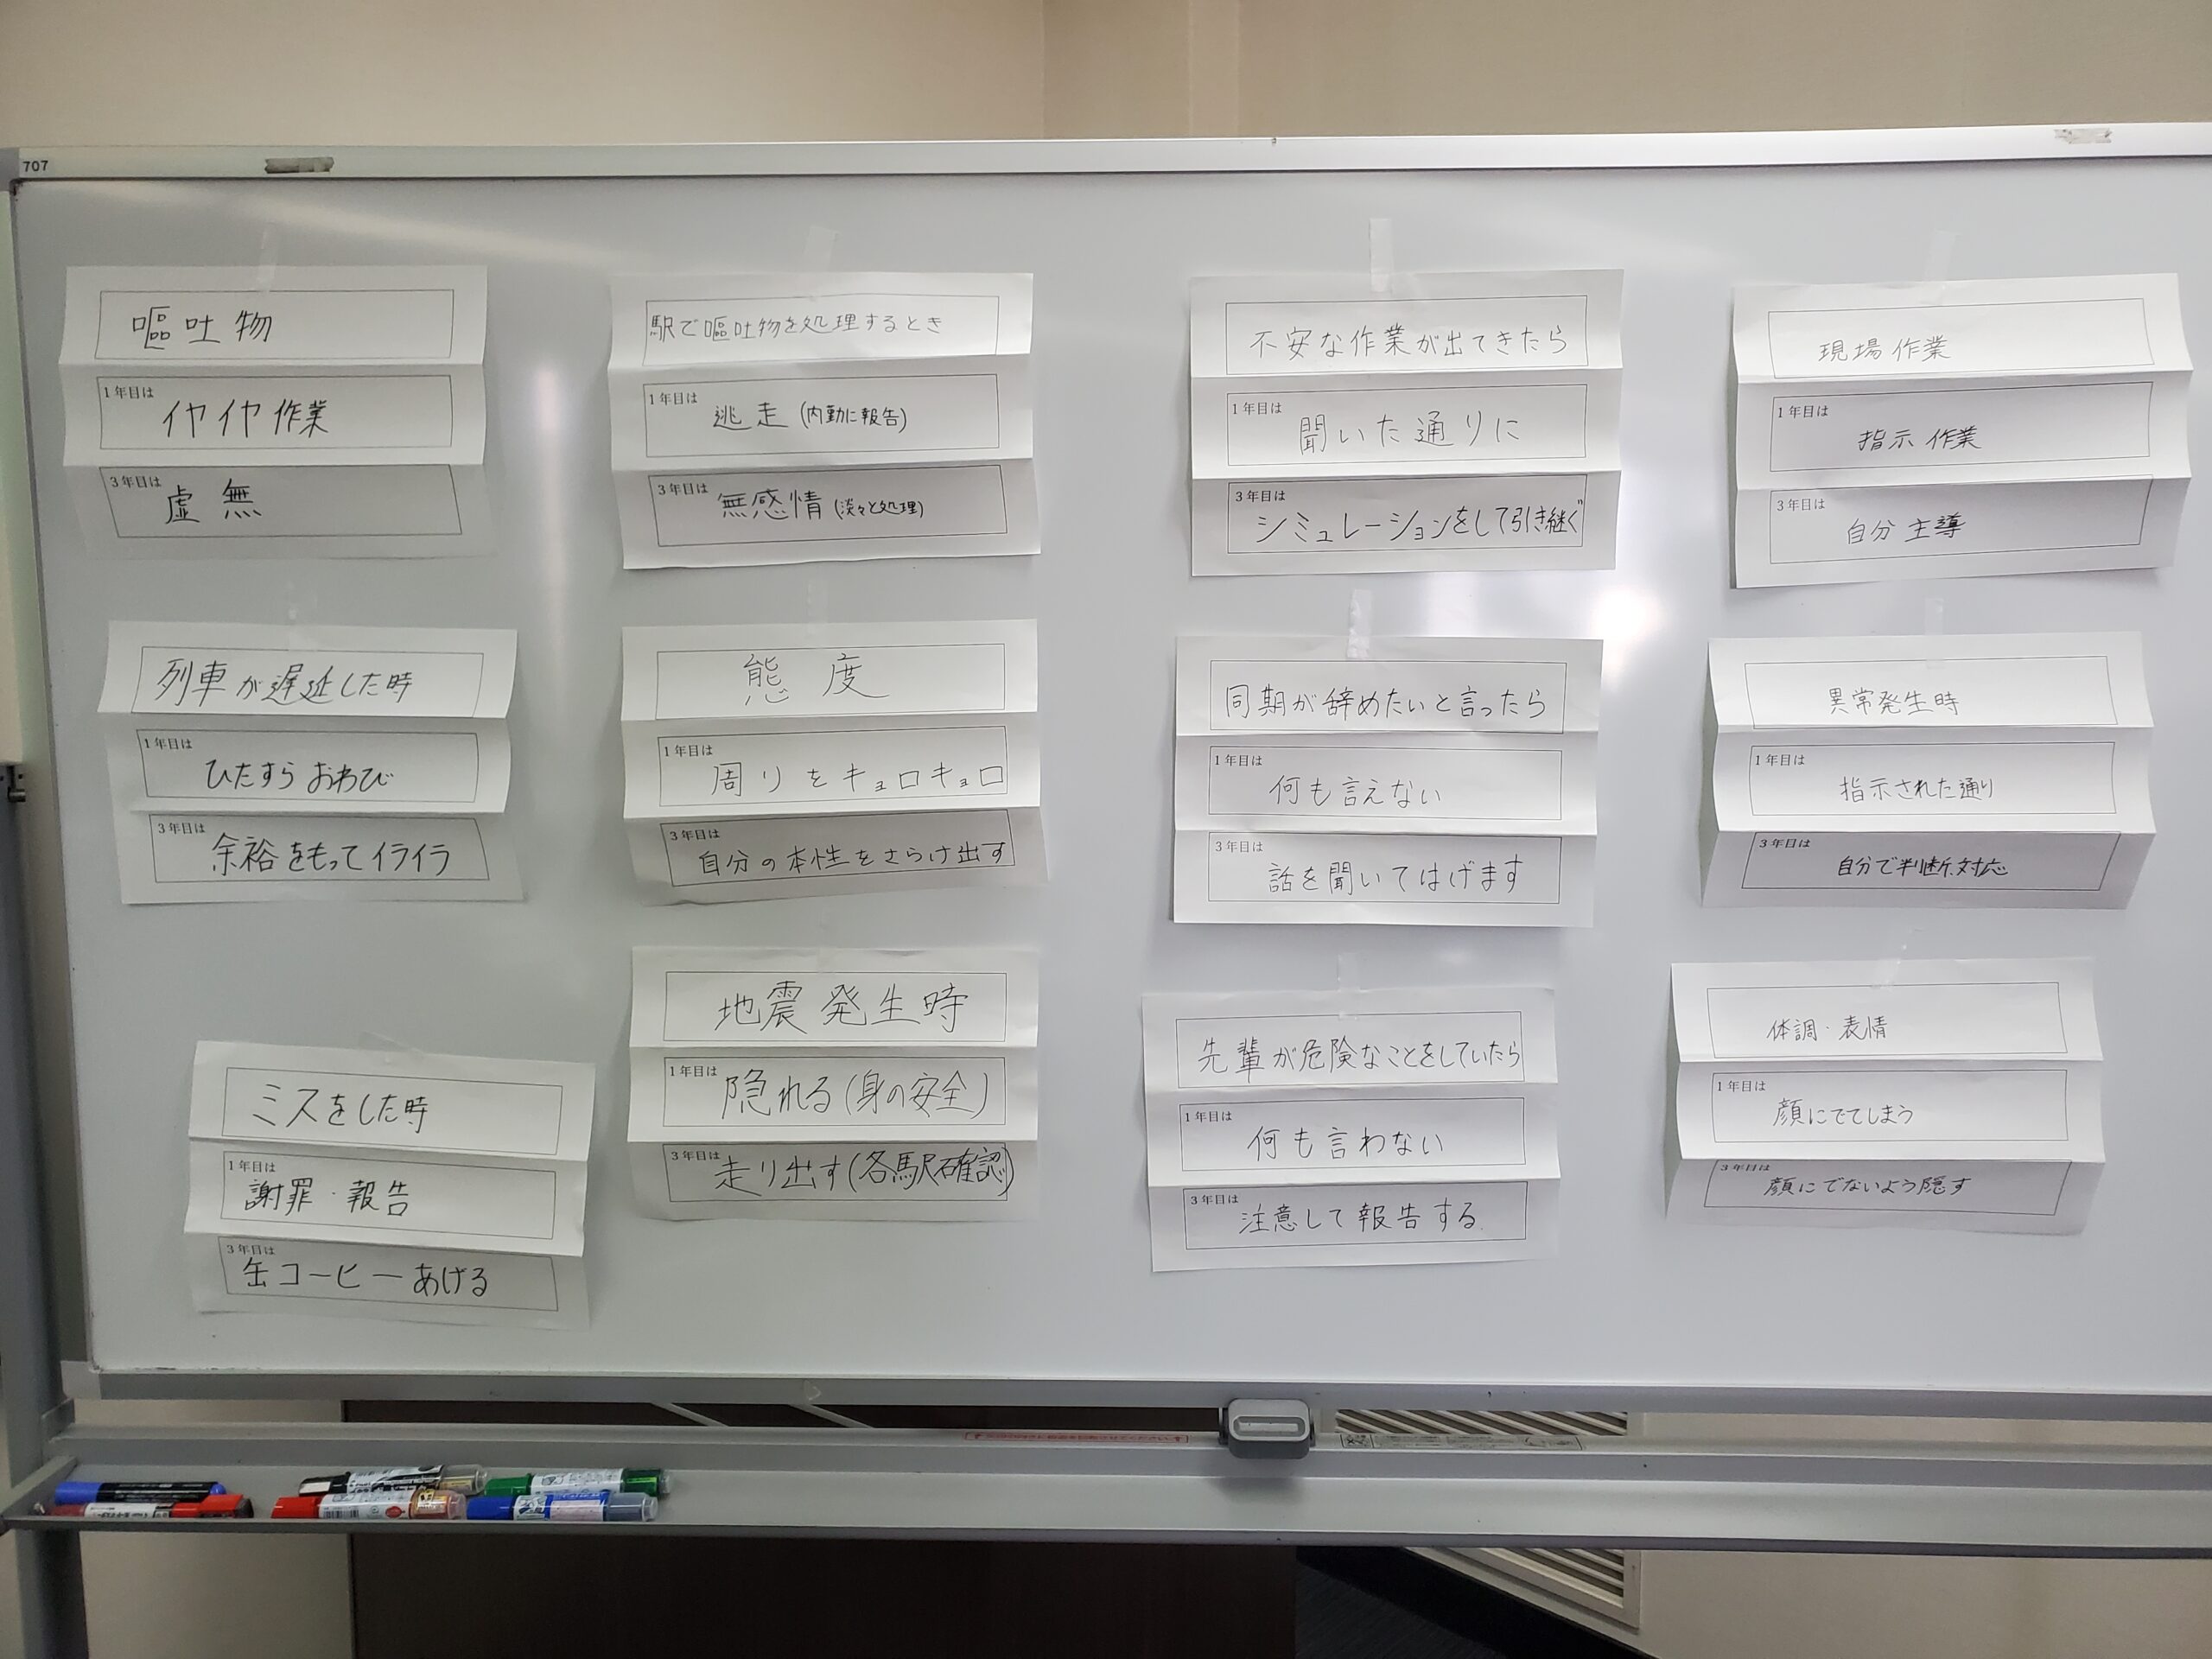 707
嘔吐物
1年目は
イヤイヤ作業
3年目は
虚無
列車が遅延した時
1年目は
ひたすらおわび
3年目は
余裕をもってイライラ
ミスをした時
1年目は
謝罪・報告
3年目は
缶コーヒーあげる
駅で嘔吐物を処理するとき
1年目は
逃走(内勤に報告)
3年目は
無感情(淡々と処理)
態度
1年目は
周りをキョロキョロ
3年目は
自分の本性をさらけ出す
地震発生時
1年目は
隠れる(身の安全)
3年目は
走り出す(各駅確認)
不安な作業が出てきたら
1年目は
聞いた通りに
3年目は
シミュレーションをして引き継ぐ
同期が辞めたいと言ったら
1年目は
何も言えない
3年目は
話を聞いてはげます
先輩が危険なことをしていたら
1年目は
何も言わない
3年目は
注意して報告する
現場作業
1年目は
指示作業
3年目は
自分主導
異常発生時
1年目は
指示された通り
3年目は
自分で判断、対応
体調・表情
1年目は
顔にでてしまう
3年目は
顔にでないよう隠す